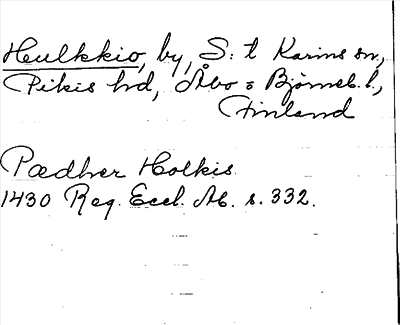 Heulkkio, by, S:t Karins sn,
Pikis hd, Åbo o Björneb. l.,
Finland
Pædher Holkis.
1430 Reg. Eccl. Ab. s. 332.